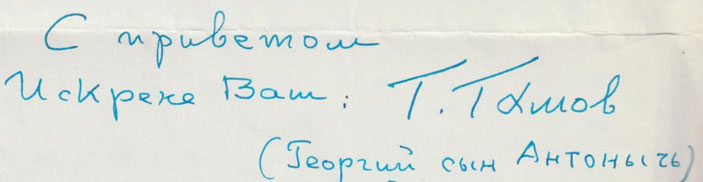 С приветом
Искрене Ваш: Г. Гамов
(Георгий сын Антонычь)